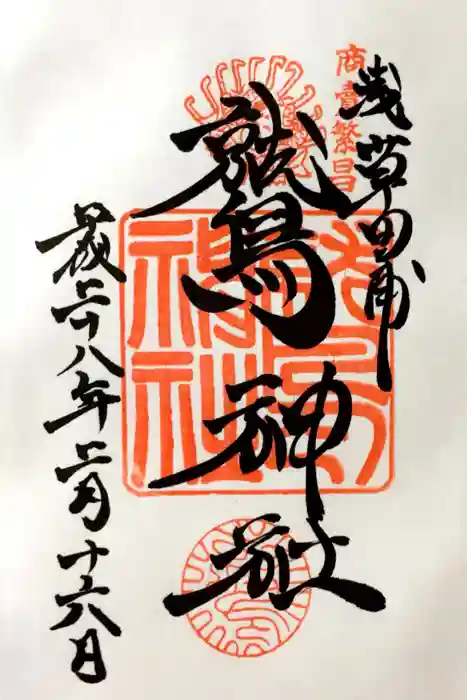 商賣繁昌
浅草田甫
鷲神社
神社
平成二十八年二月十六日